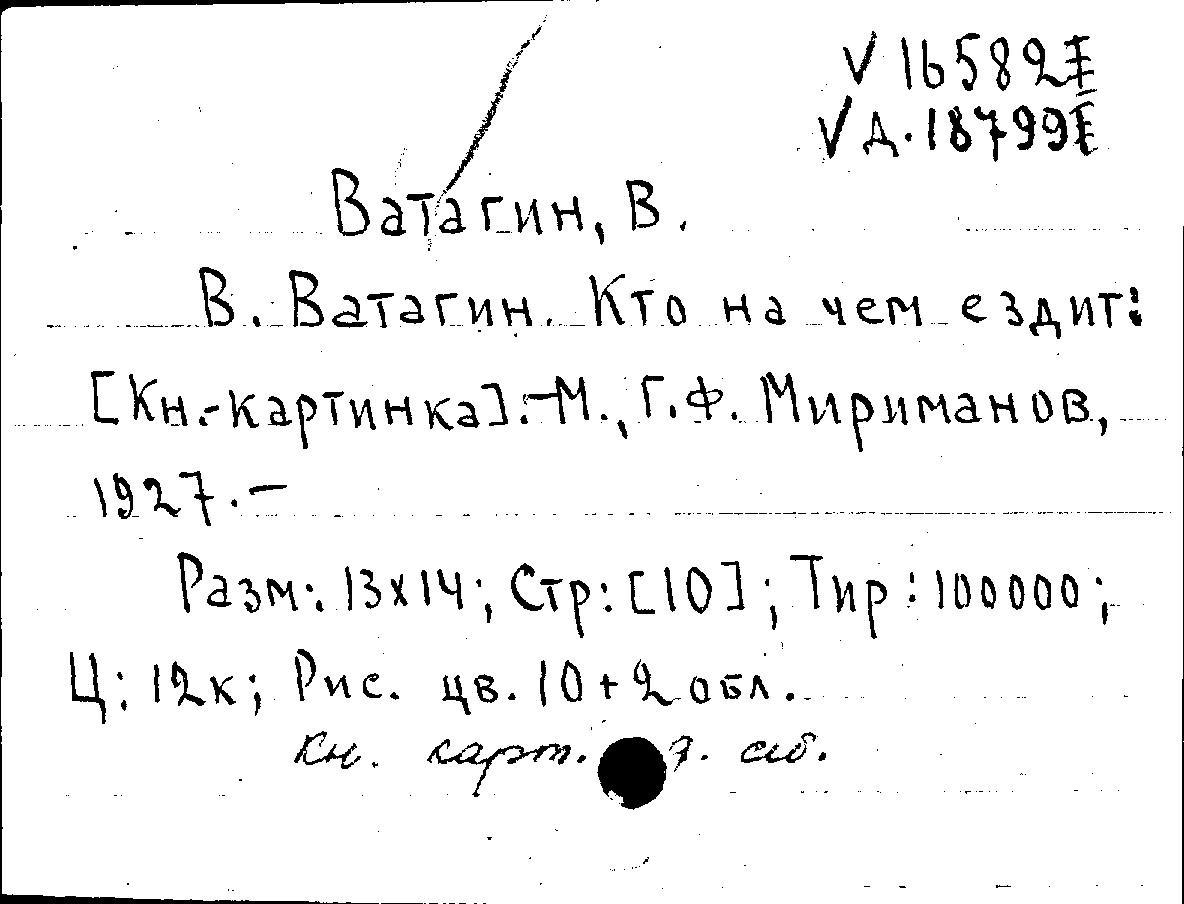 √ 16582 I
√ Д. 18799 I
Ватагин, В.
В. Ватагин. Кто на чем ездит:
[Кн.-картинка].-М., Г.Ф. Мириманов,
1927.-
Разм: 13х14; Стр: [10]; Тир: 100000;
Ц: 12к; Рис. цв. 10+2 обл.
Кн. карт.